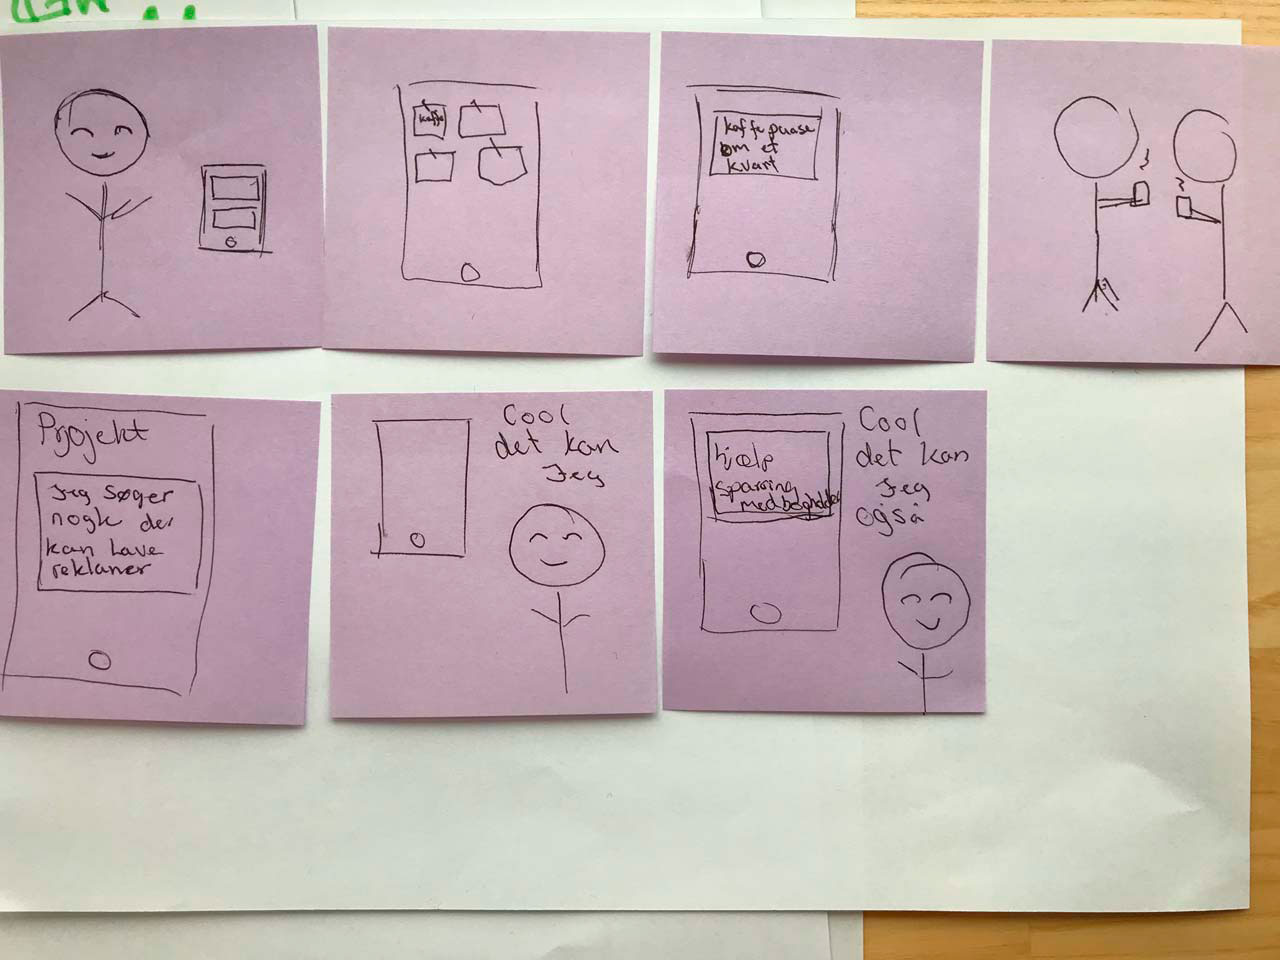 kaffe
kaffepause
om et
kvart
Projekt
Jeg søger
nogle der
kan lave
reklamer
Cool
det kan
Jeg
hjælp
sparring
Cool
det kan
Jeg
også